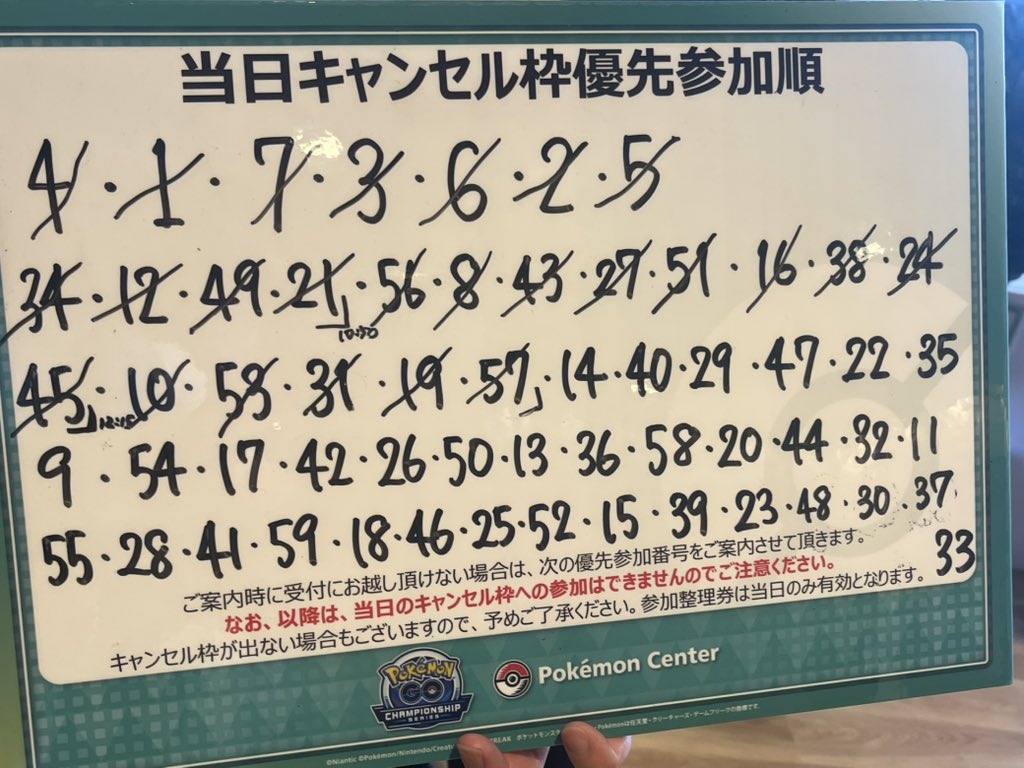 当日キャンセル枠優先参加順
4・1・7・3・6・2・5
34・12・49・21・56・8・43・27・51・16・38・24
10:50
45・10・53・31・19・57・14・40・29・47・22・35
12:15
9・54・17・42・26・50・13・36・58・20・44・32・11
55・28・41・59・18・46・25・52・15・39・23・48・30・37
33
ご案内時に受付にお越し頂けない場合は、次の優先参加番号をご案内させて頂きます。
なお、以降は、当日のキャンセル枠への参加はできませんのでご注意ください。
キャンセル枠が出ない場合もございますので、予めご了承ください。参加整理券は当日のみ有効となります。
Pokémon GO
CHAMPIONSHIP
SERIES
Pokémon Center
©Niantic ©Pokémon/Nintendo/Creatu
REAK ポケットモンス
Pokémonは任天堂・クリーチャーズ・ゲームフリークの商標です。